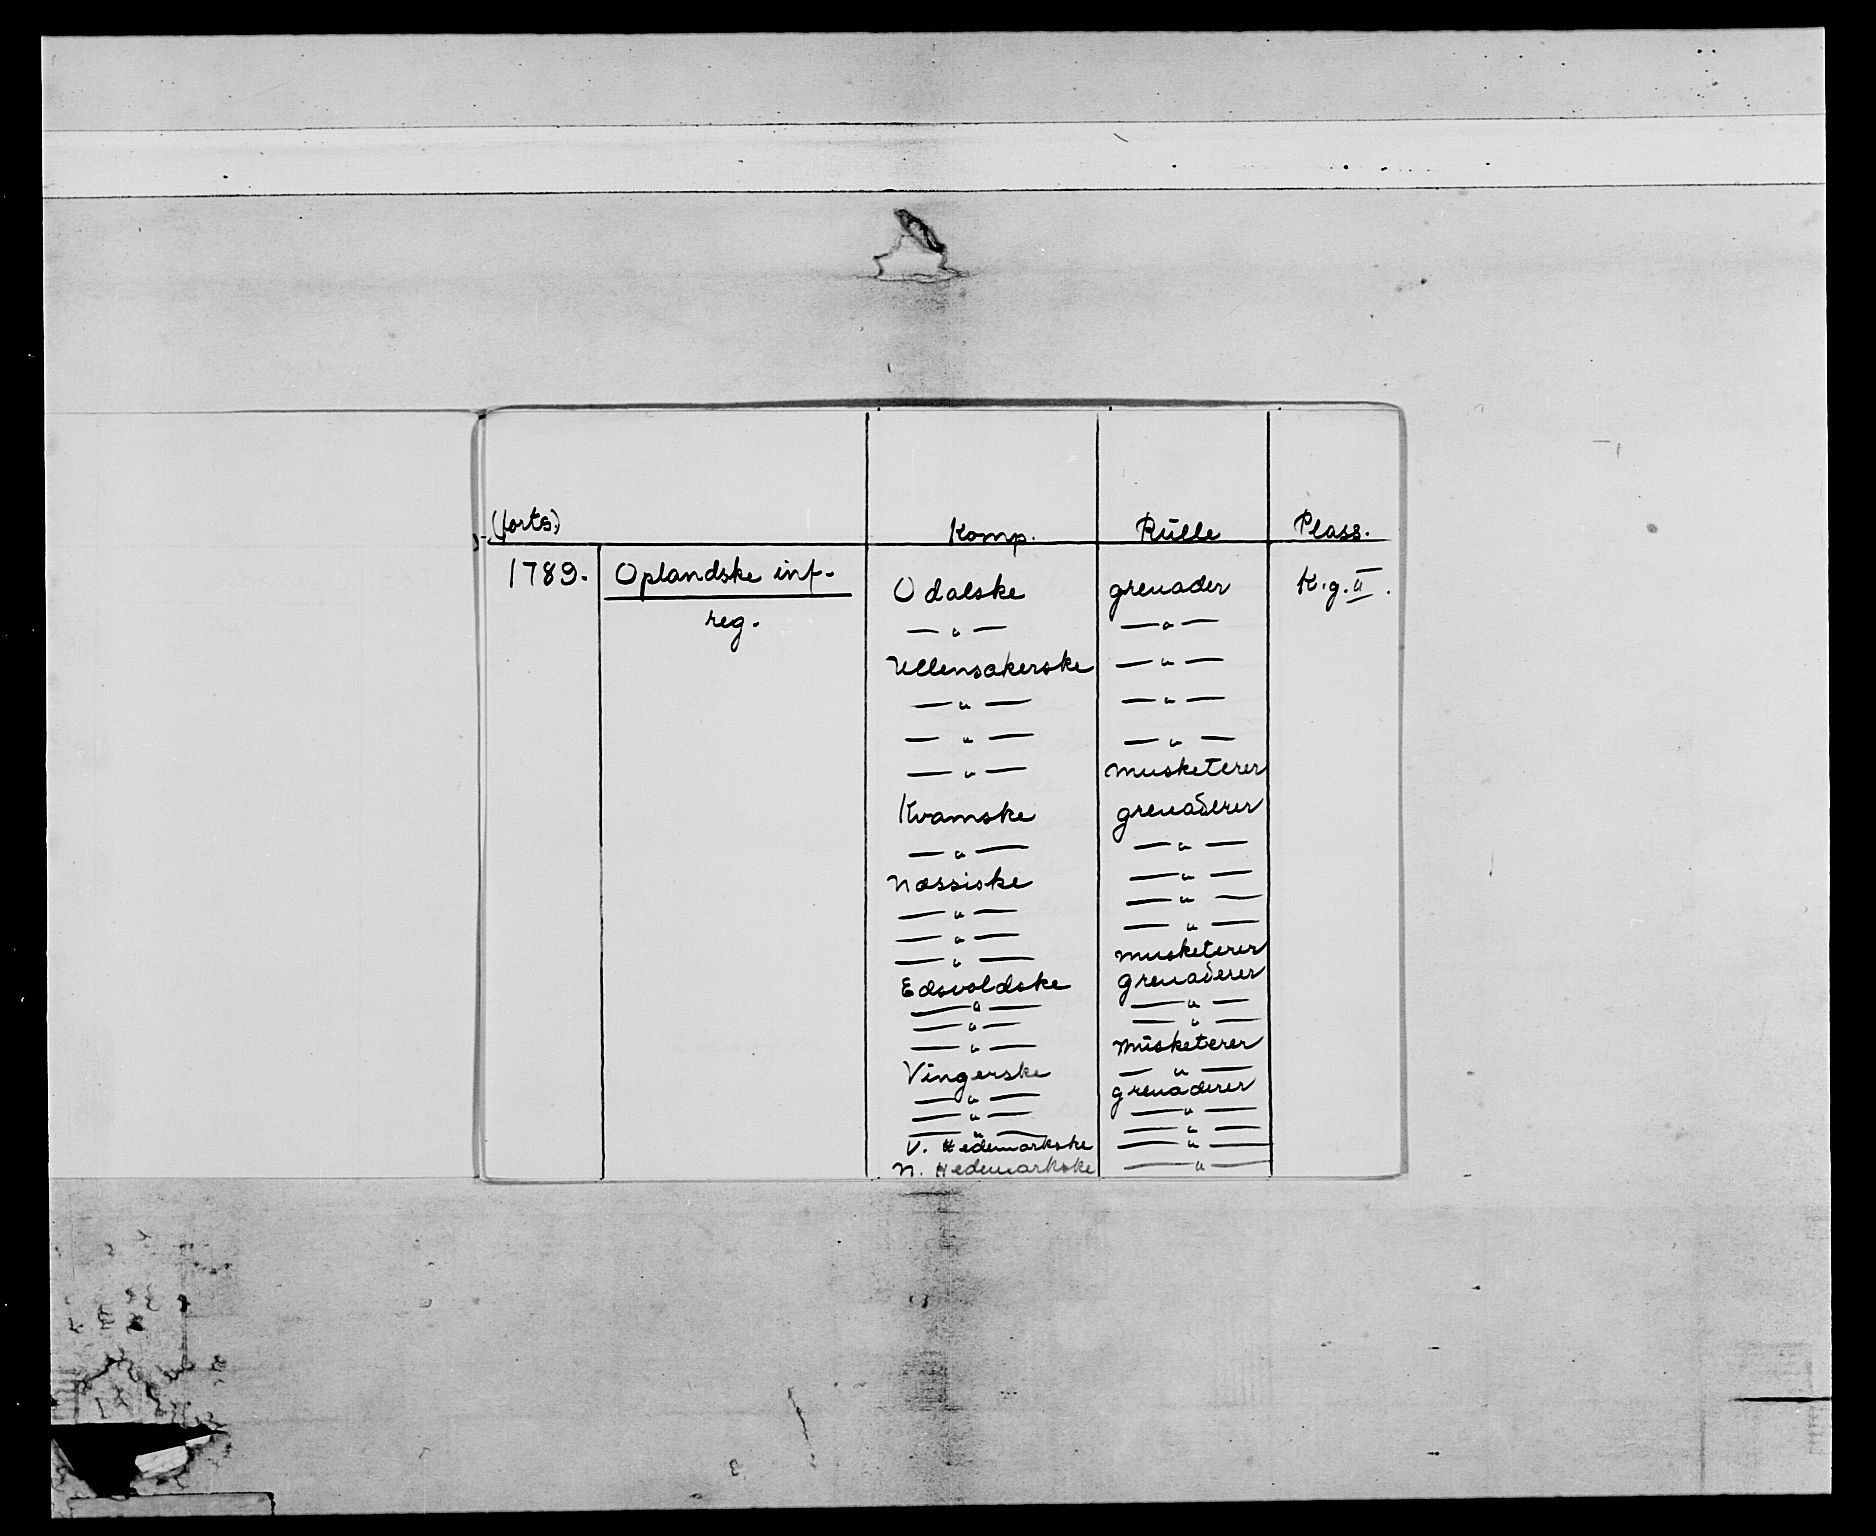 (forts.) Komp. Rulle Plass.
1789. Oplandske inf. Odalske grenader K.g. II.
reg. — " — — " —
Ullensakerske — " —
— " — — " —
— " — — " —
— " — musketerer
Kvamske grenaderer
— " — — " —
Næssiske — " —
— " — — " —
— " — — " —
— " — musketerer
Edsvoldske grenaderer
— " — — " —
— " — — " —
— " — musketerer
Vingerske — " —
— " — grenaderer
— " — — " —
— " — — " —
V. Hedemarkske — " —
N. Hedemarkske — " —